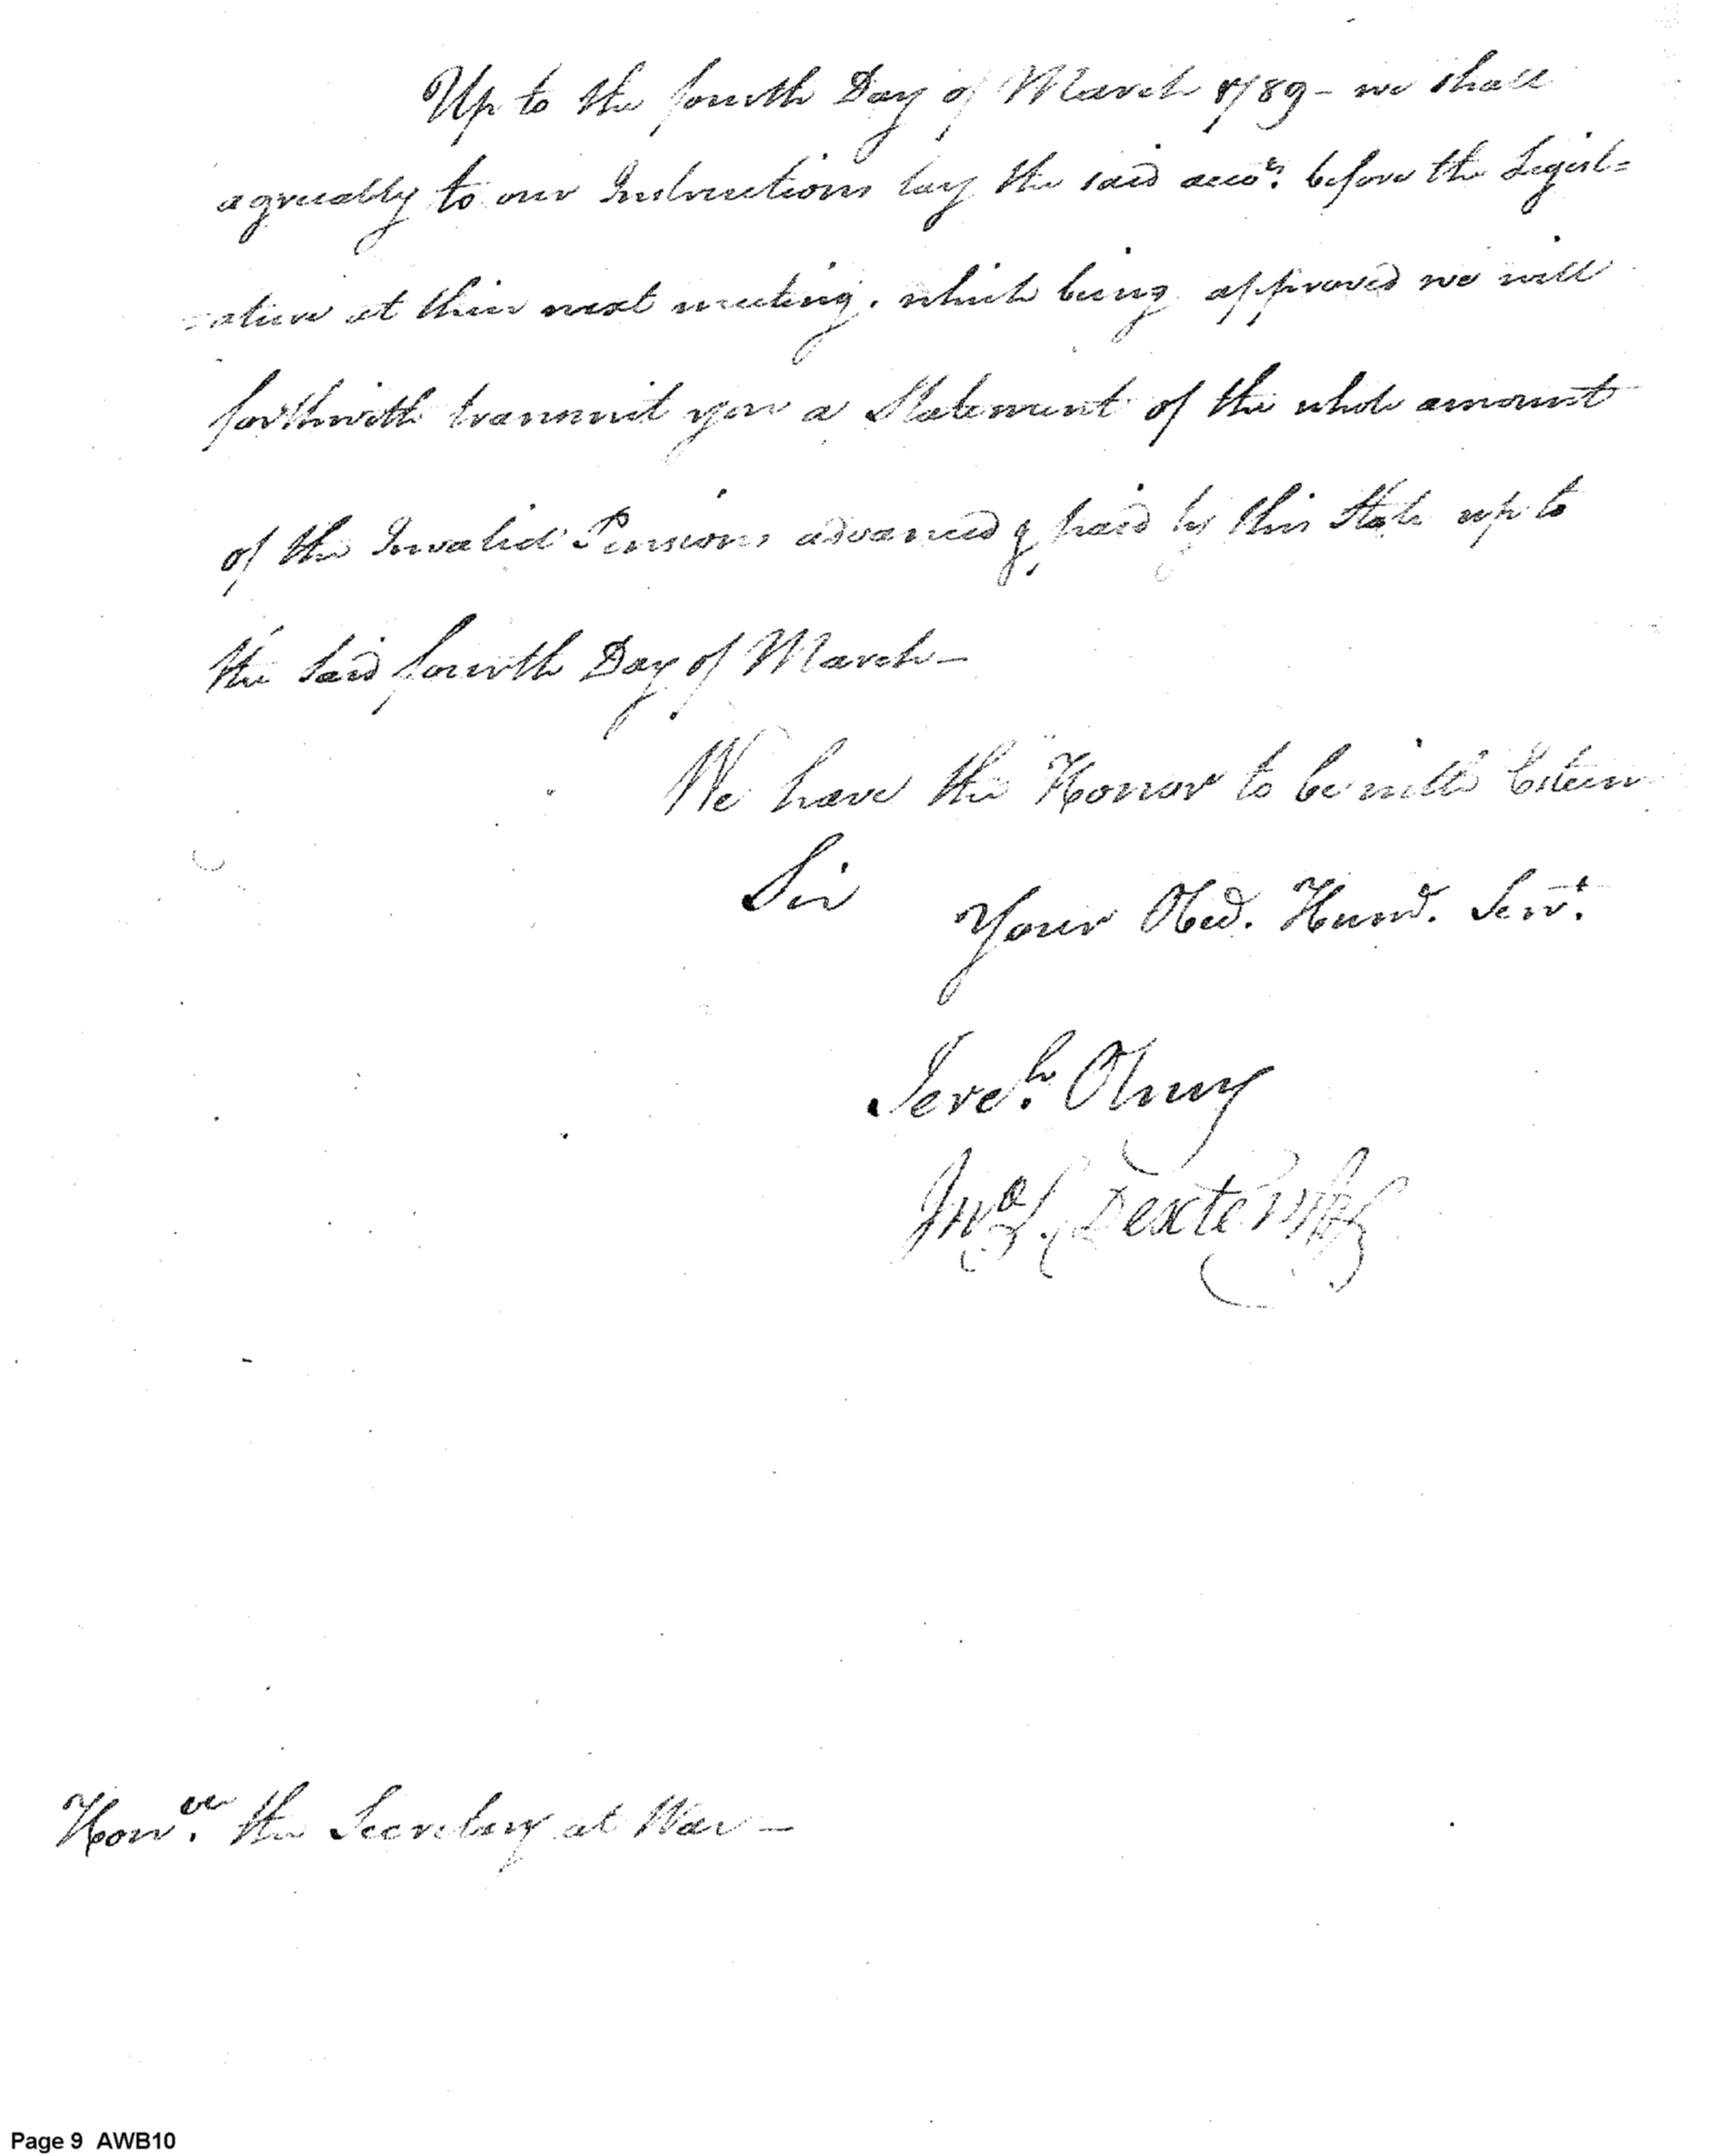 Up to the fourth Day of March 1789 - we shall
agreeably to our Instructions lay the said acco.ts before the Legisl=
=ature at their next meeting, which being approved we will
forthwith transmit you a Statement of the whole amount
of the Invalid Pensions advanced & paid by this State up to
the said fourth Day of March -
We have the Honor to be with Esteem
Sir
Your Obed. Hum.d Serv.t
Jere.h Olney
Jn.o S. Dexter
Hon.ble the Secretary at War -
Page 9 AWB10